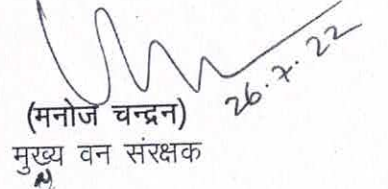 26.7.22
(मनोज चन्द्रन)
मुख्य वन संरक्षक